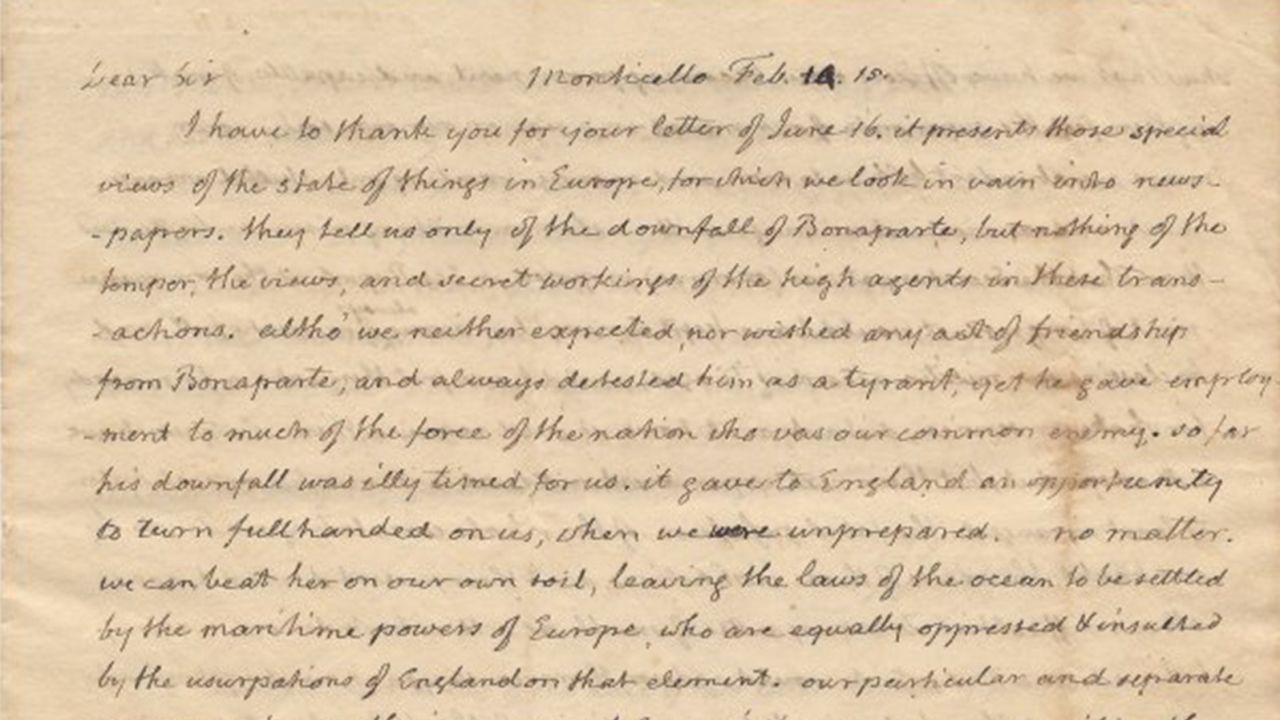 Dear Sir Monticello Feb. 14. 15.
I have to thank you for your letter of June 16. it presents those special
views of the state of things in Europe, for which we look in vain into news-
-papers. they tell us only of the downfall of Bonaparte, but nothing of the
temper, the views, and secret workings of the high agents in these trans-
-actions. altho' we neither expected, nor wished any act of friendship
from Bonaparte, and always detested him as a tyrant, yet he gave employ-
-ment to much of the force of the nation who was our common enemy. so far
his downfall was illy timed for us. it gave to England an opportunity
to turn fullhanded on us, when we were unprepared. no matter.
we can beat her on our own soil, leaving the laws of the ocean to be settled
by the maritime powers of Europe, who are equally oppressed & insulted
by the usurpations of England on that element. our particular and separate